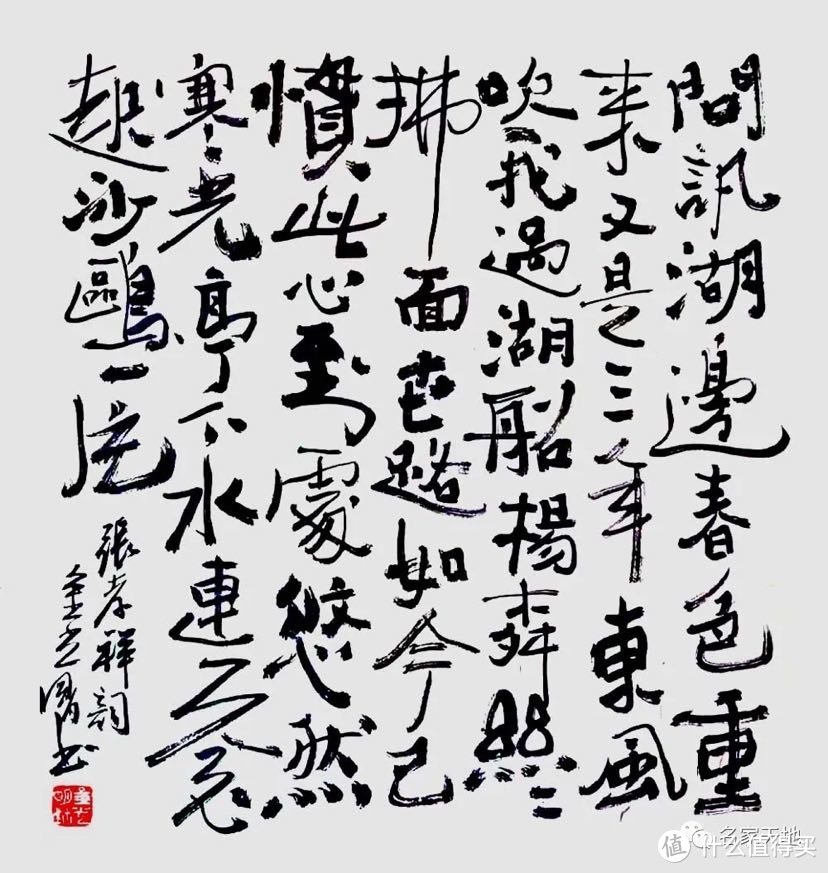 問訊湖邊春色重
来又是三年東風
吹我過湖船楊柳絲〻
拂面世路如今已
慣此心到處悠然
寒光亭下水連天飛
起沙鷗一片
張孝祥詞
書
名家天地
值 什么值得买